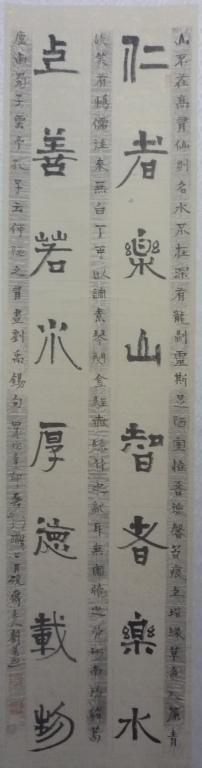 山不在高有仙則名水不在深有龍則靈斯是陋室惟吾德馨苔痕上堦緑草色入簾青
仁者樂山智者樂水
談笑有鴻儒往來無白丁可以調素琴閱金經無絲竹之亂耳無案牘之勞形南陽諸葛
上善若水厚德載物
廬西蜀子雲亭孔子云何陋之有書劉禹錫句